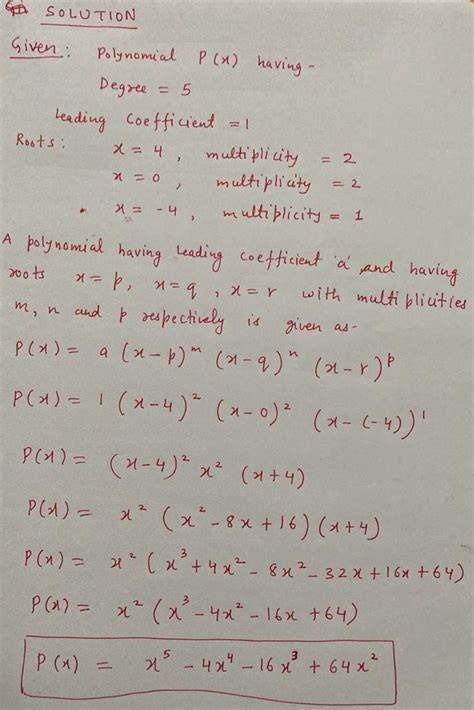 SOLUTION
Given: Polynomial P(x) having -
Degree = 5
Leading Coefficient = 1
Roots: x = 4, multiplicity = 2
x = 0, multiplicity = 2
x = -4, multiplicity = 1
A polynomial having leading coefficient 'a', and having
roots x = p, x = q, x = r with multiplicities
m, n and p respectively is given as-
P(x) = a (x-p)^m (x-q)^n (x-r)^p
P(x) = 1 (x-4)² (x-0)² (x-(-4))¹
P(x) = (x-4)² x² (x+4)
P(x) = x² (x² - 8x + 16) (x+4)
P(x) = x² (x³ + 4x² - 8x² - 32x + 16x + 64)
P(x) = x² (x³ - 4x² - 16x + 64)
P(x) = x⁵ - 4x⁴ - 16x³ + 64x²